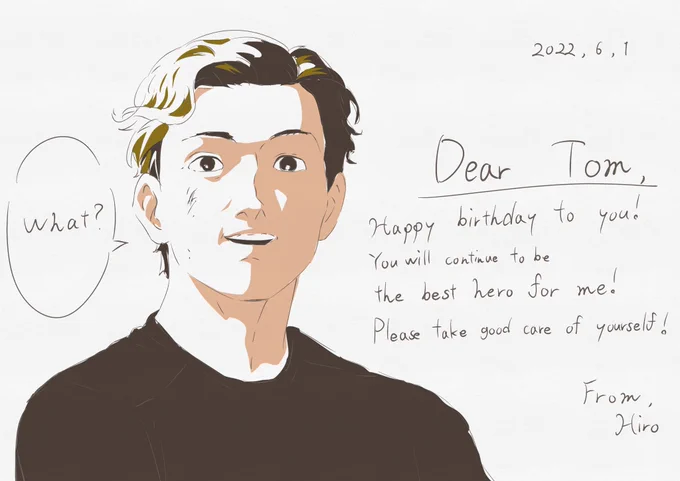 2022,6,1
What?
Dear Tom,
Happy birthday to you!
You will continue to be
the best hero for me!
Please take good care of yourself!
From,
Hiro